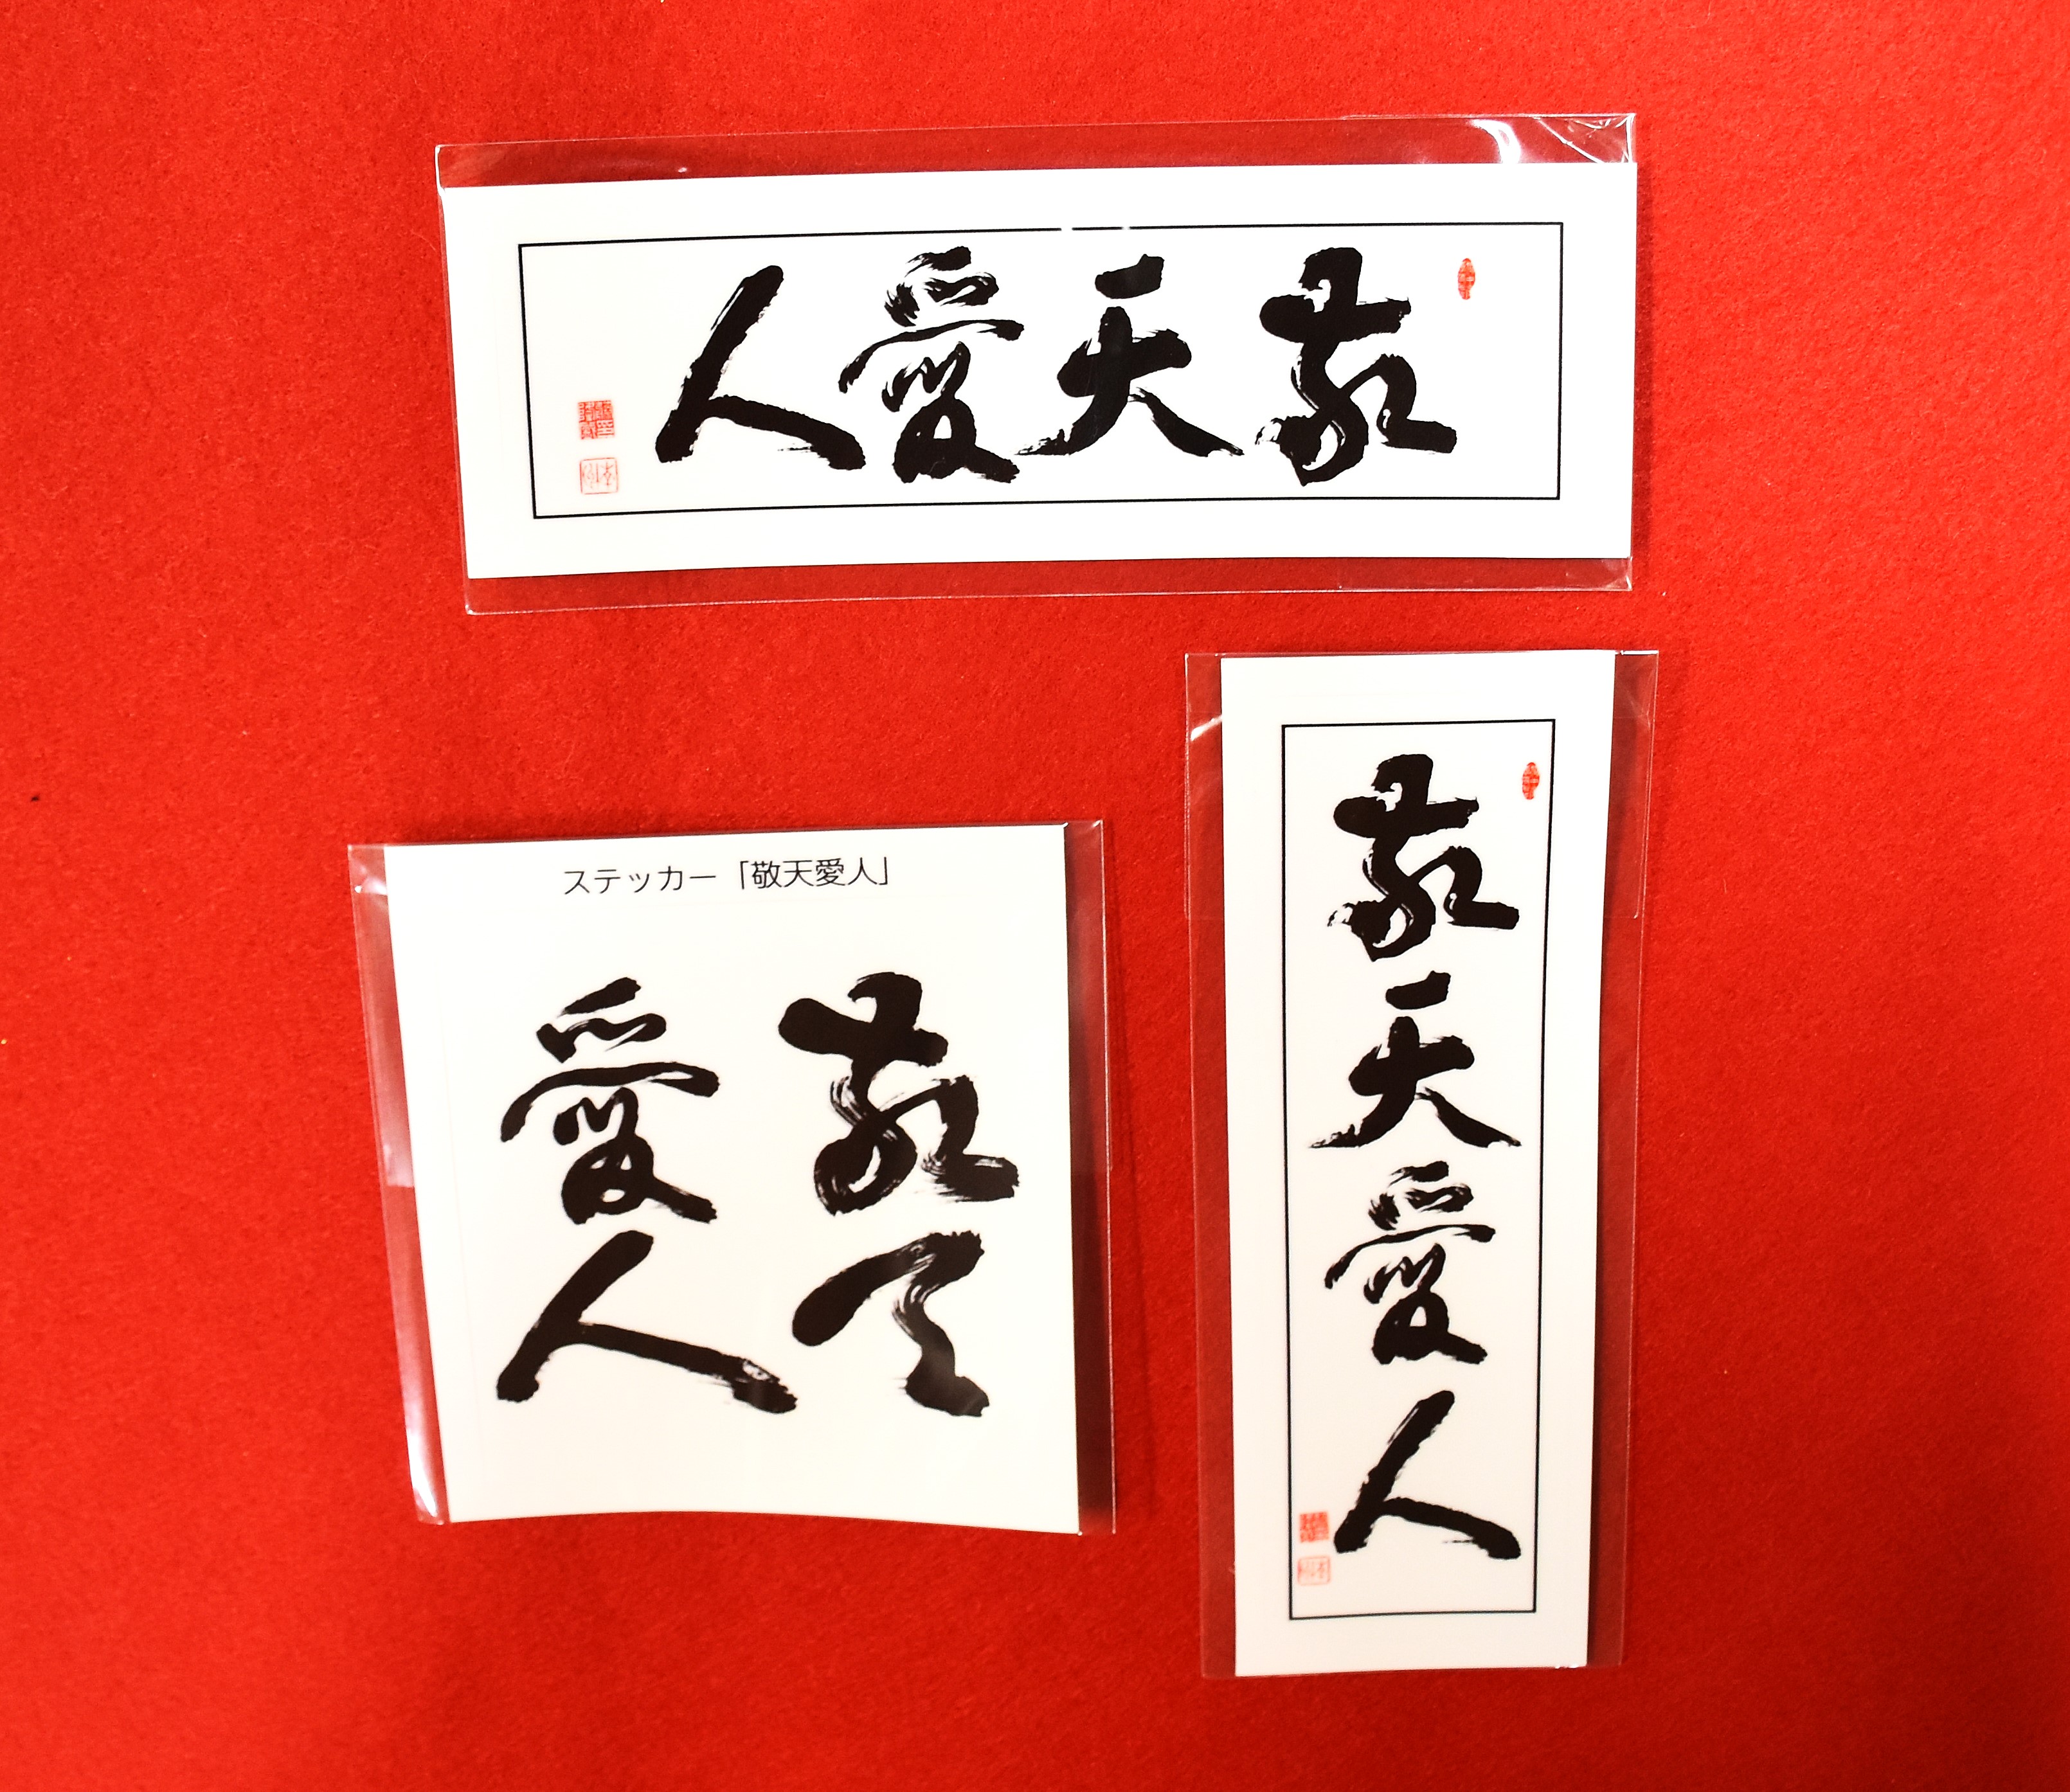 敬天愛人
ステッカー「敬天愛人」
敬天
愛人
敬天愛人